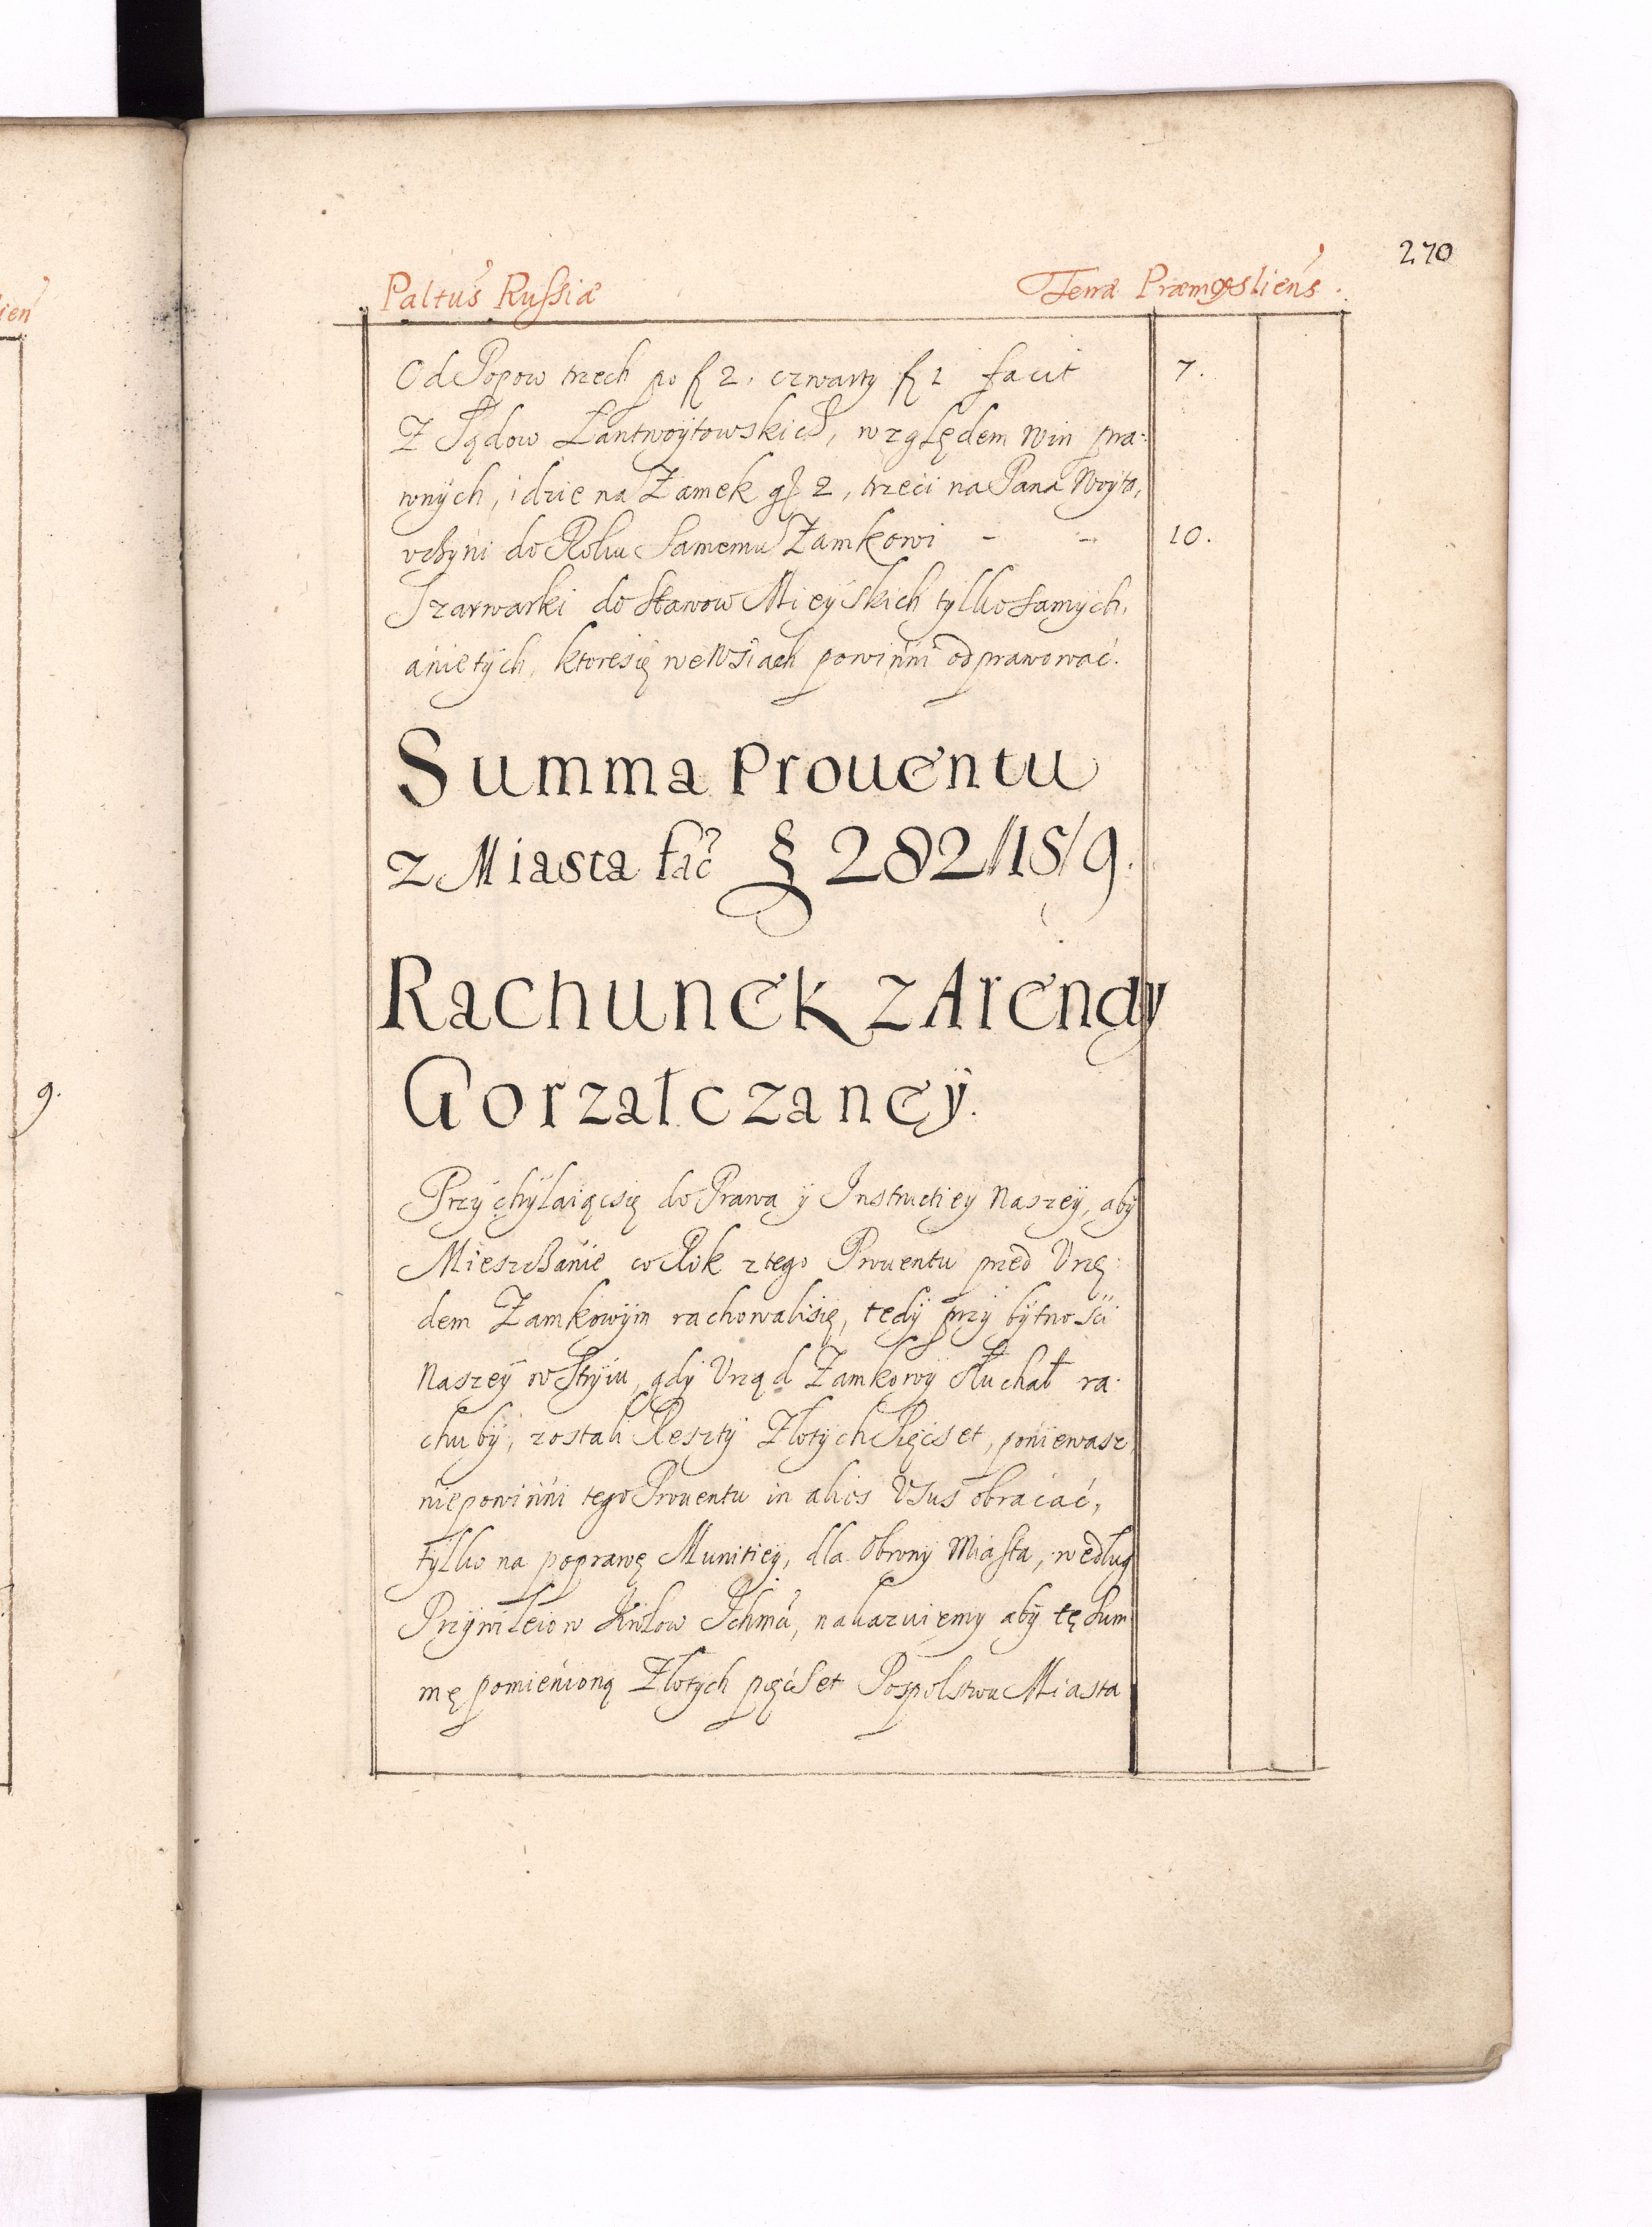 270
Paltus Russiæ Terræ Præmysliens.
Od Popow trzech po fl 2, czwarty fl 1 facit 7.
Z Sądow Lantwoytowskich, względem win pra:
wnych, idzie na Zamek gr 2, trzeci na Pana Woyta,
vczyni do Roku samemu Zamkowi - - 10.
Szarwarki do stawow Mieyskich tylko samych,
anie tych, ktore się we Wsiach powinni odprawować.
Summa Prouentu
z Miasta fac 282//15/9.
Rachunek z Arendy
Gorzałczaney.
Przychylaiąc się do Prawa y Instructiey Naszey, aby
Mieszczanie co Rok z tego Prouentu przed Vrzę:
dem Zamkowym rachowali się, tedy przy bytnosci
Naszey w Stryiu, gdy Vrząd Zamkowy słuchał ra:
chuby, zostali Reszty Złotych Pięcset, poniewasz
nie powinni tego Prouentu in alios Vsus obracać,
tylko na poprawę Munitiey, dla obrony Miasta, według
Przywileiow Krolow Ichmći, nakazuiemy aby tę Sum
mę pomienioną Złotych pięćset Pospolstwu Miasta
lien
9.